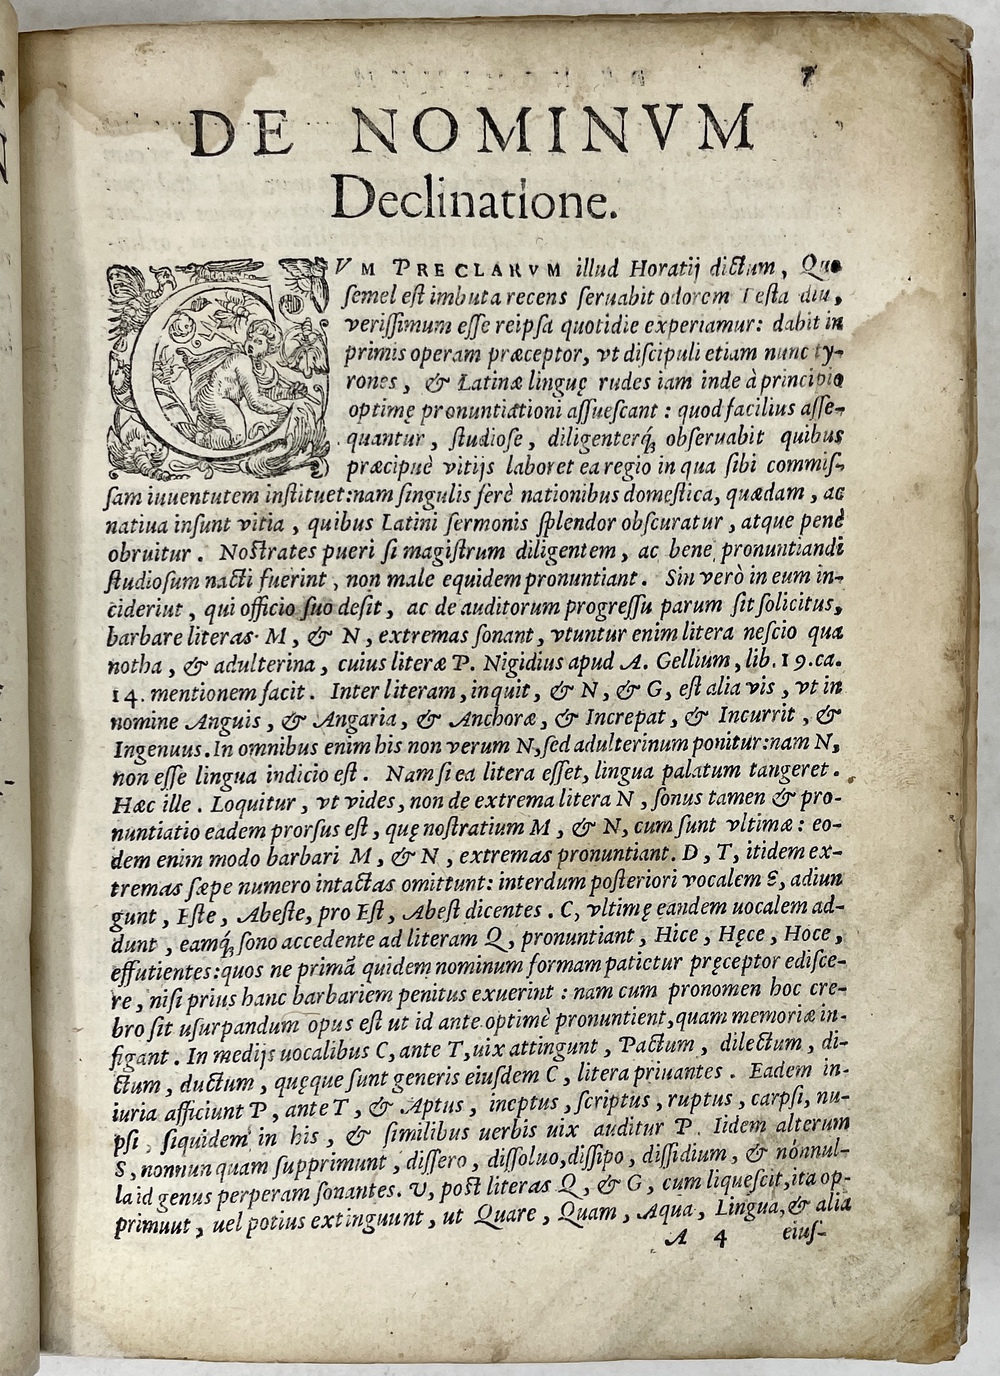 7
DE NOMINVM
Declinatione.
CVM PRECLARVM illud Horatij dictum, Quo
semel est imbuta recens seruabit odorem Testa diu,
verissimum esse reipsa quotidie experiamur: dabit in
primis operam præceptor, vt discipuli etiam nunc ty-
rones, & Latinæ linguę rudes iam inde à principio
optimę pronuntiationi assuescant: quod facilius asse-
quantur, studiose, diligenterq́; obseruabit quibus
præcipuè vitijs laboret ea regio in qua sibi commis-
sam iuuentutem instituet: nam singulis ferè nationibus domestica, quædam, ac
natiua insunt vitia, quibus Latini sermonis splendor obscuratur, atque penè
obruitur. Nostrates pueri si magistrum diligentem, ac bene pronuntiandi
studiosum nacti fuerint, non male equidem pronuntiant. Sin verò in eum in-
cideriut, qui officio suo desit, ac de auditorum progressu parum sit solicitus,
barbare literas M, & N, extremas sonant, vtuntur enim litera nescio qua
notha, & adulterina, cuius literæ P. Nigidius apud A. Gellium, lib. 19. ca.
14. mentionem facit. Inter literam, inquit, & N, & G, est alia vis, vt in
nomine Anguis, & Angaria, & Anchoræ, & Increpat, & Incurrit, &
Ingenuus. In omnibus enim his non verum N, sed adulterinum ponitur: nam N,
non esse lingua indicio est. Nam si ea litera esset, lingua palatum tangeret.
Hæc ille. Loquitur, vt vides, non de extrema litera N, sonus tamen & pro-
nuntiatio eadem prorsus est, quę nostratium M, & N, cum sunt vltimæ: eo-
dem enim modo barbari M, & N, extremas pronuntiant. D, T, itidem ex-
tremas sæpe numero intactas omittunt: interdum posteriori vocalem E, adiun
gunt, Este, Abeste, pro Est, Abest dicentes. C, vltimę eandem uocalem ad-
dunt, eamq́; sono accedente ad literam Q, pronuntiant, Hice, Hęce, Hoce,
effutientes: quos ne primã quidem nominum formam patictur pręceptor edisce-
re, nisi prius hanc barbariem penitus exuerint: nam cum pronomen hoc cre-
bro sit usurpandum opus est ut id ante optimè pronuntient, quam memoriæ in-
figant. In medijs uocalibus C, ante T, uix attingunt, Pactum, dilectum, di-
ctum, ductum, quęque sunt generis eiusdem C, litera priuantes. Eadem in-
iuria afficiunt P, ante T, & Aptus, ineptus, scriptus, ruptus, carpsi, nu-
psi, siquidem in his, & similibus uerbis uix auditur P. Iidem alterum
S, nonnunquam supprimunt, dissero, dissoluo, dissipo, dissidium, & nónnul-
la id genus perperam sonantes. V, post literas Q, & G, cum liquescit, ita op-
primuut, uel potius extinguunt, ut Quare, Quam, Aqua, Lingua, & alia
A 4 eius-